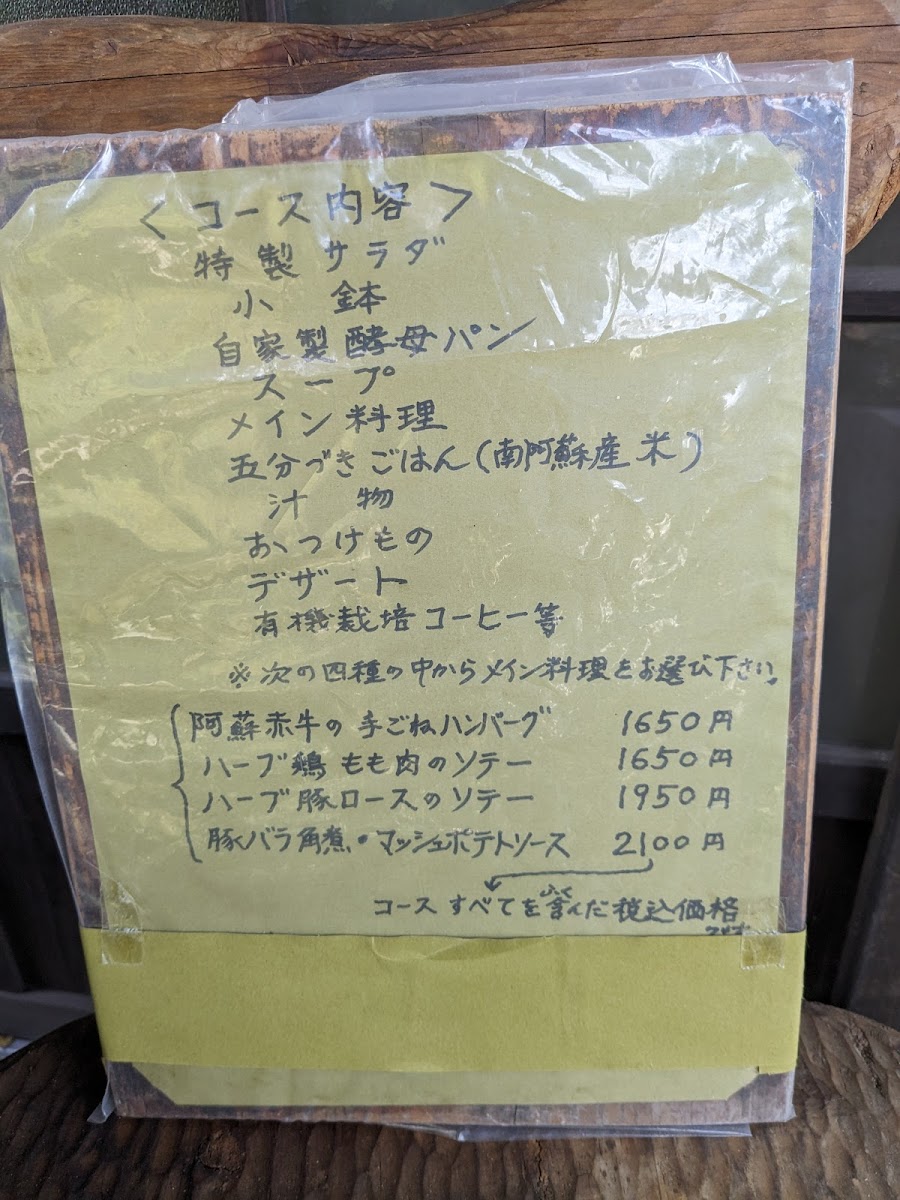 ＜コース内容＞
特製サラダ
小 鉢
自家製酵母パン
スープ
メイン料理
五分づきごはん(南阿蘇産米)
汁 物
おつけもの
デザート
有機栽培コーヒー等
※次の四種の中からメイン料理をお選び下さい。
阿蘇赤牛の手ごねハンバーグ 1650円
ハーブ鶏もも肉のソテー 1650円
ハーブ豚ロースのソテー 1950円
豚バラ角煮・マッシュポテトソース 2100円
ふく
コースすべてを含んだ税込価格